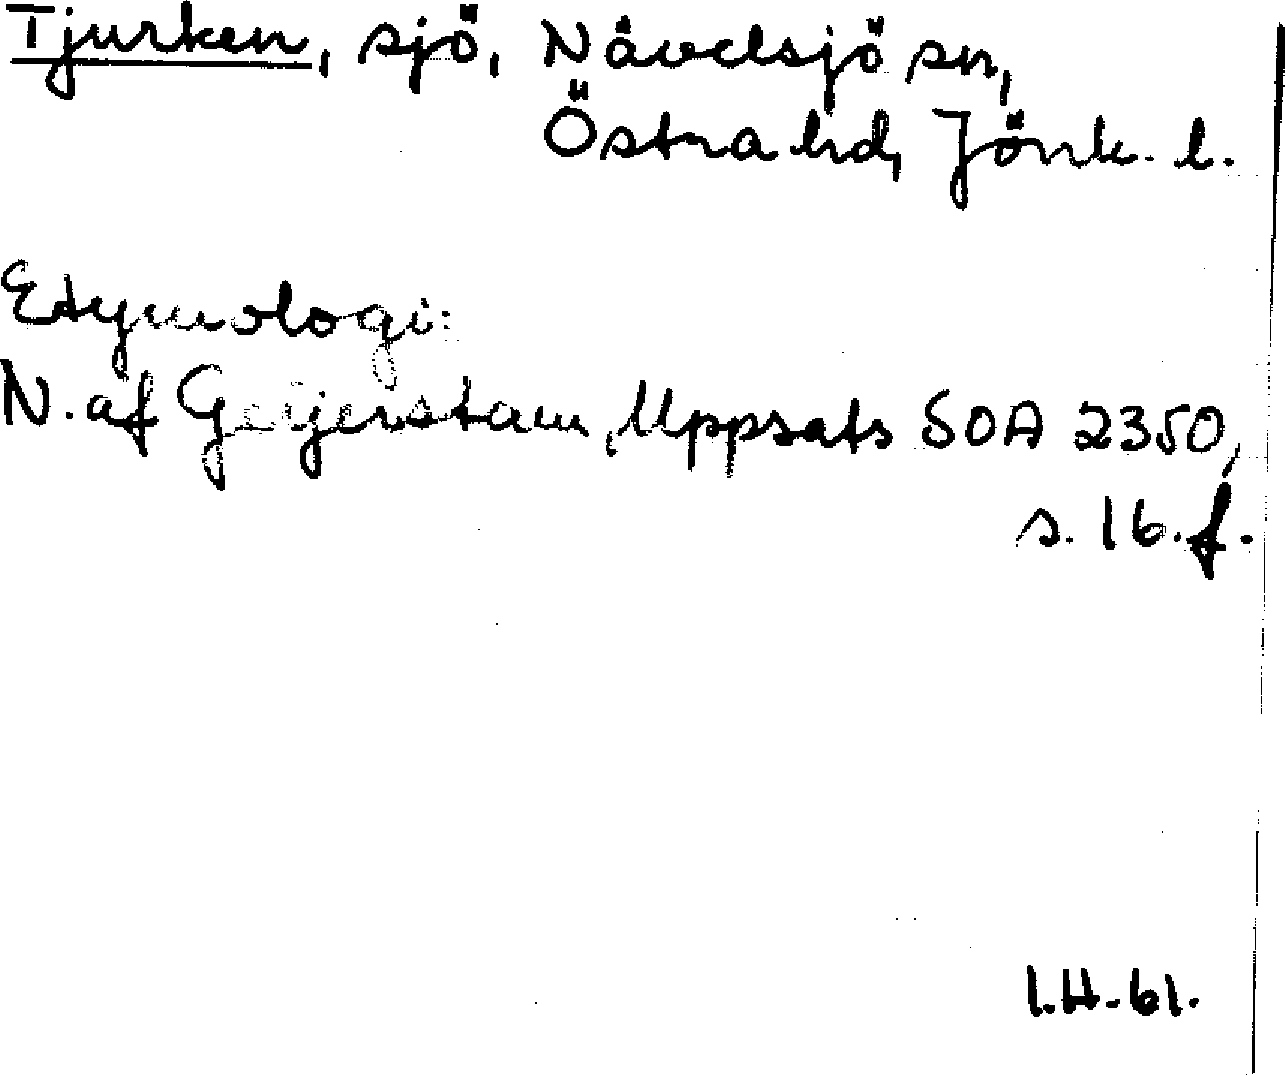 Tjurken, sjö, Nävelsjö sn,
Östra hd, Jönk. l.
Etymologi:
N. af Geijerstam, Uppsats SOA 2350,
s. 16. f.
I.H.-61.